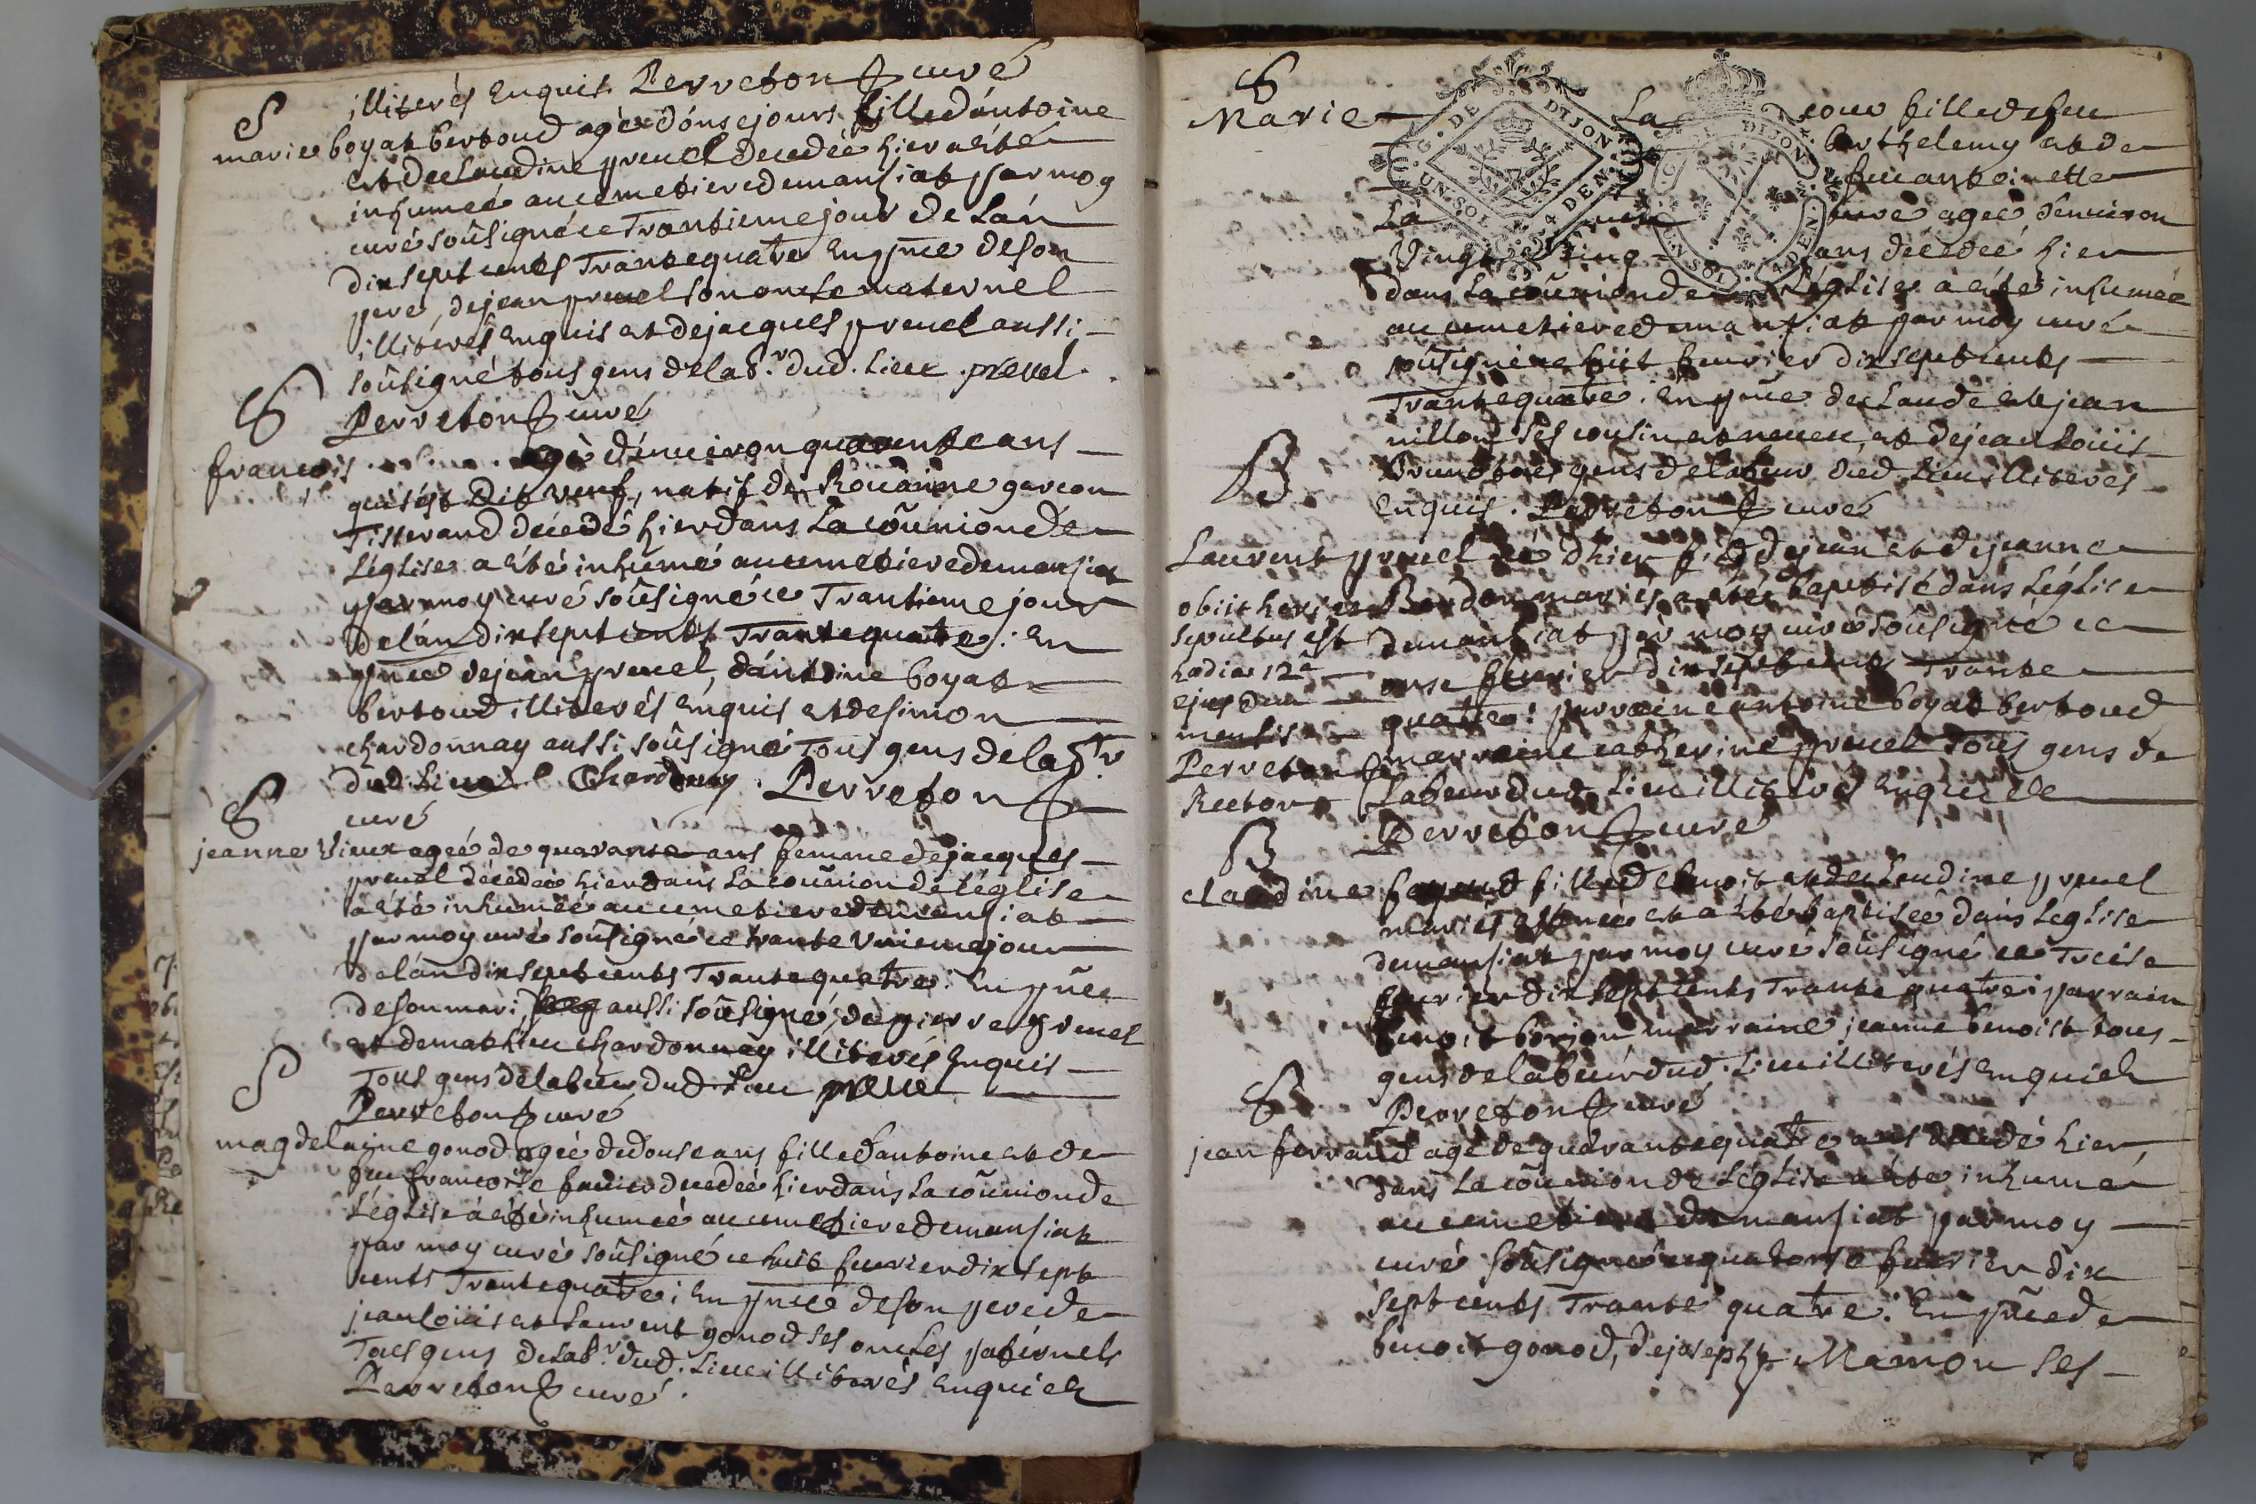 illiterés Enquis Perreton curé
S
marie boyat bertoud agée d'onse jours fille d'antoine
et de claudine preuel decedée hier a été
inhumée au cimetiere de mansiat par moy
curé soûsigné ce Trantieme jour de L'an
dix sept cents Trante quatre En pñce de son
pere, de jean preuel son oncle maternel
illiterés Enquis et de jacques preuel aussi
soûsigné tous gens de lab.r dud. Lieu . prevel .
Perreton curé
S
francois agé d'enuiron quarante ans
qui s'est Dit veuf, natif de Roüanne garcon
Tisserand decedé hier dans La coũnion de
L'églises a été inhumé au cimetiere de mansiat
par moy curé soûsigné ce Trantieme jour
de l'an dix sept cents Trante quatre : En
pñce de jean preuel, d'antoine boyat
bertoud illiterés Enquis et de simon
chardonnay aussi soûsigné Tous gens de lab.r
dud. Lieu Chardonay . Perreton
curé
S
jeanne Vieux agée de quarante ans femme de jacques
preuel décedée hier dans La coũnion de l'église
a été inhumée au cimetiere de mansiat
par moy curé soûsigné ce trante Vnieme jour
de l'an dix sept cents Trante quatre : En pñce
de son mari, aussi soûsigné, de pierre preuel
et de mathieu chardonnay illiterés Enquis
Tous gens de labeur dud. Lieu preuel
Perreton curé
S
magdelaine gonod agée de douse ans fille d'antoine et de
feu francoise decedée hier dans La coũnion de
L'église a été inhumée au cimetiere de mansiat
par moy curé soûsigné ce huit feurier dix sept
cents Trante quatre ; En pñce de son pere de
jean loüis et Laurent gonod ses oncles paternels
Tous gens de Lab.r dud. Lieu illiterés Enquich
Perreton curé .
S
Marie La cour fille de feu
G. DE DIJON UN SOL 4 DEN
DIJON UN SOL 4 DEN
berthelemy et de
feu antoinette
La agée d'enuiron
Vingt cinq ans décedée hier
dans La coũnion de L'églises a été inhumée
au cimetiere de mansiat par moy curé
soûsigné ce huit feurier dix sept cents
Trante quatre : En pñce de claude et jean
nillon ses cousin et neueu, et de jean Loüis
brun tous gens de labeur dud. Lieu illiterés
Enquis . Perreton curé
B
Laurent preuel né d'hier fils de jean et de jeanne
mariés a été baptisé dans L'église
de mansiat par moy curé soûsigné ce
onse feurier dix sept cents Trante
quatre : parrain antoine boyat bertoud
marraine catherine preuel Tous gens de
Labeur dud. Lieu illiterés Enquich
Perreton curé
obiit heri
sepultus est
hodie 12a
ejusdem
mensis
Perreton
Rector
B
claudine fille de benoit et de claudine preuel
mariés est née et a été baptisée dans L'église
de mansiat par moy curé soûsigné ce Treise
feurier dix sept cents Trante quatre ; parrain
benoit marraine jeanne benoist tous
gens de labeur dud. Lieu illiterés Enquich
Perreton curé
S
jean ferrand agé de quarante quatre ans decedé hier,
dans La coũnion de L'église a été inhumé
au cimetiere de mansiat par moy
curé soûsigné ce quatorse feurier dix
sept cents Trante quatre : En pñce de
benoit gonod, de joseph Mamon ses